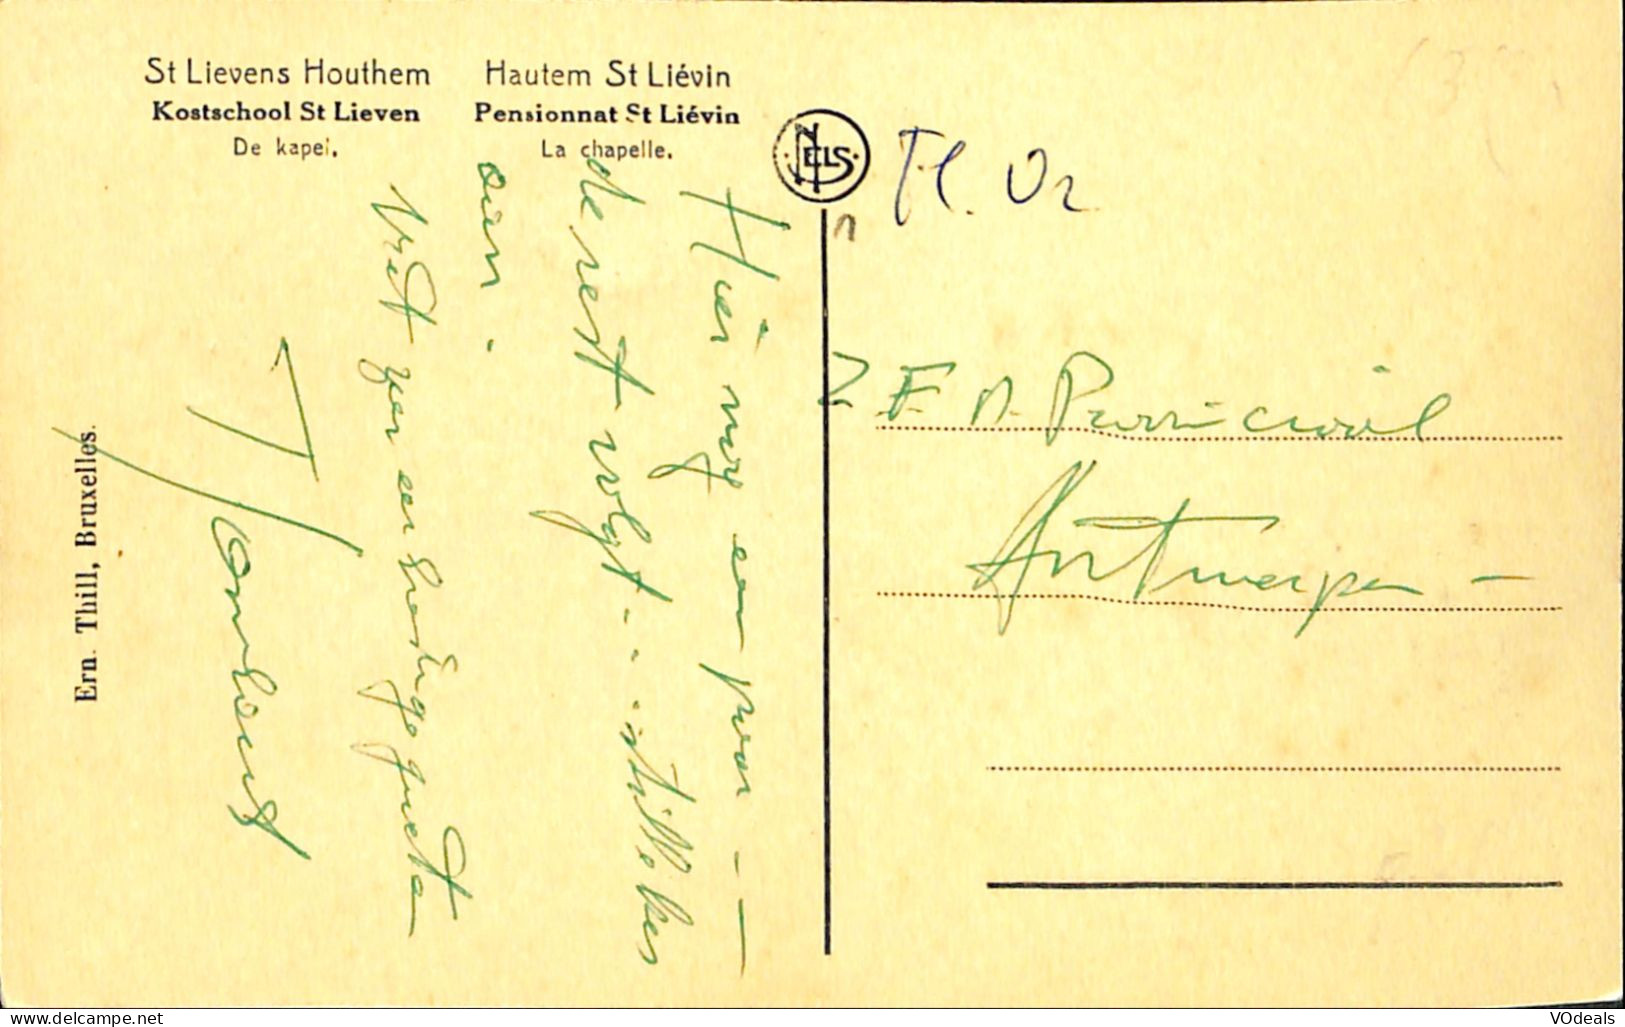 St Lievens Houthem
Kostschool St Lieven
De kapel.
Hautem St Liévin
Pensionnat St Liévin
La chapelle.
NELS
Fl. Or
Hier nog een paar — —
de rest volgt ... stillekes
aan.
Met een hartige groeten
Ern. Thill, Bruxelles.
Z E P. Provinciaal
Antwerpen —
www.delcampe.net
VOdeals